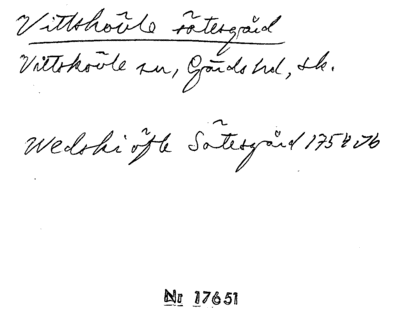 Vittskövle sätesgård
Vittskövle sn, Gärds hd, sk.
Wedskiöfle Sätesgård 1754 Jb
Nr 17651